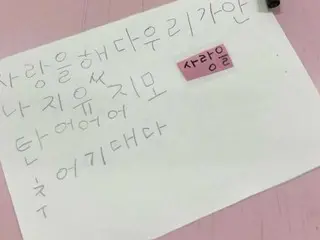 사랑을해다우리가안
나지윴지모
탄어어어
훗어기대다
사랑을